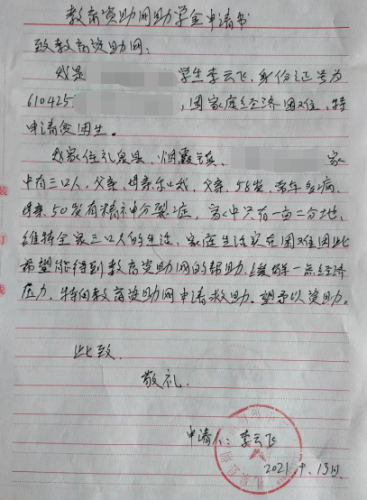 教育资助网助学金申请书
致教育资助网:
我是 学生李云飞,身份证号为
610425 ,因家庭经济困难,特
申请贫困生。
我家住礼泉县、烟霞镇、 家
中有三口人,父亲、母亲和我,父亲,58岁,常年多病,
母亲,50岁有精神分裂症,家中只有一亩二分地,
维持全家三口人的生活,家庭生活实在困难因此
希望能得到教育资助网的帮助,缓解一点经济
压力,特向教育资助网申请救助,望予以资助。
此致
敬礼
申请人:李云飞
2021.9.13日
装
订
线